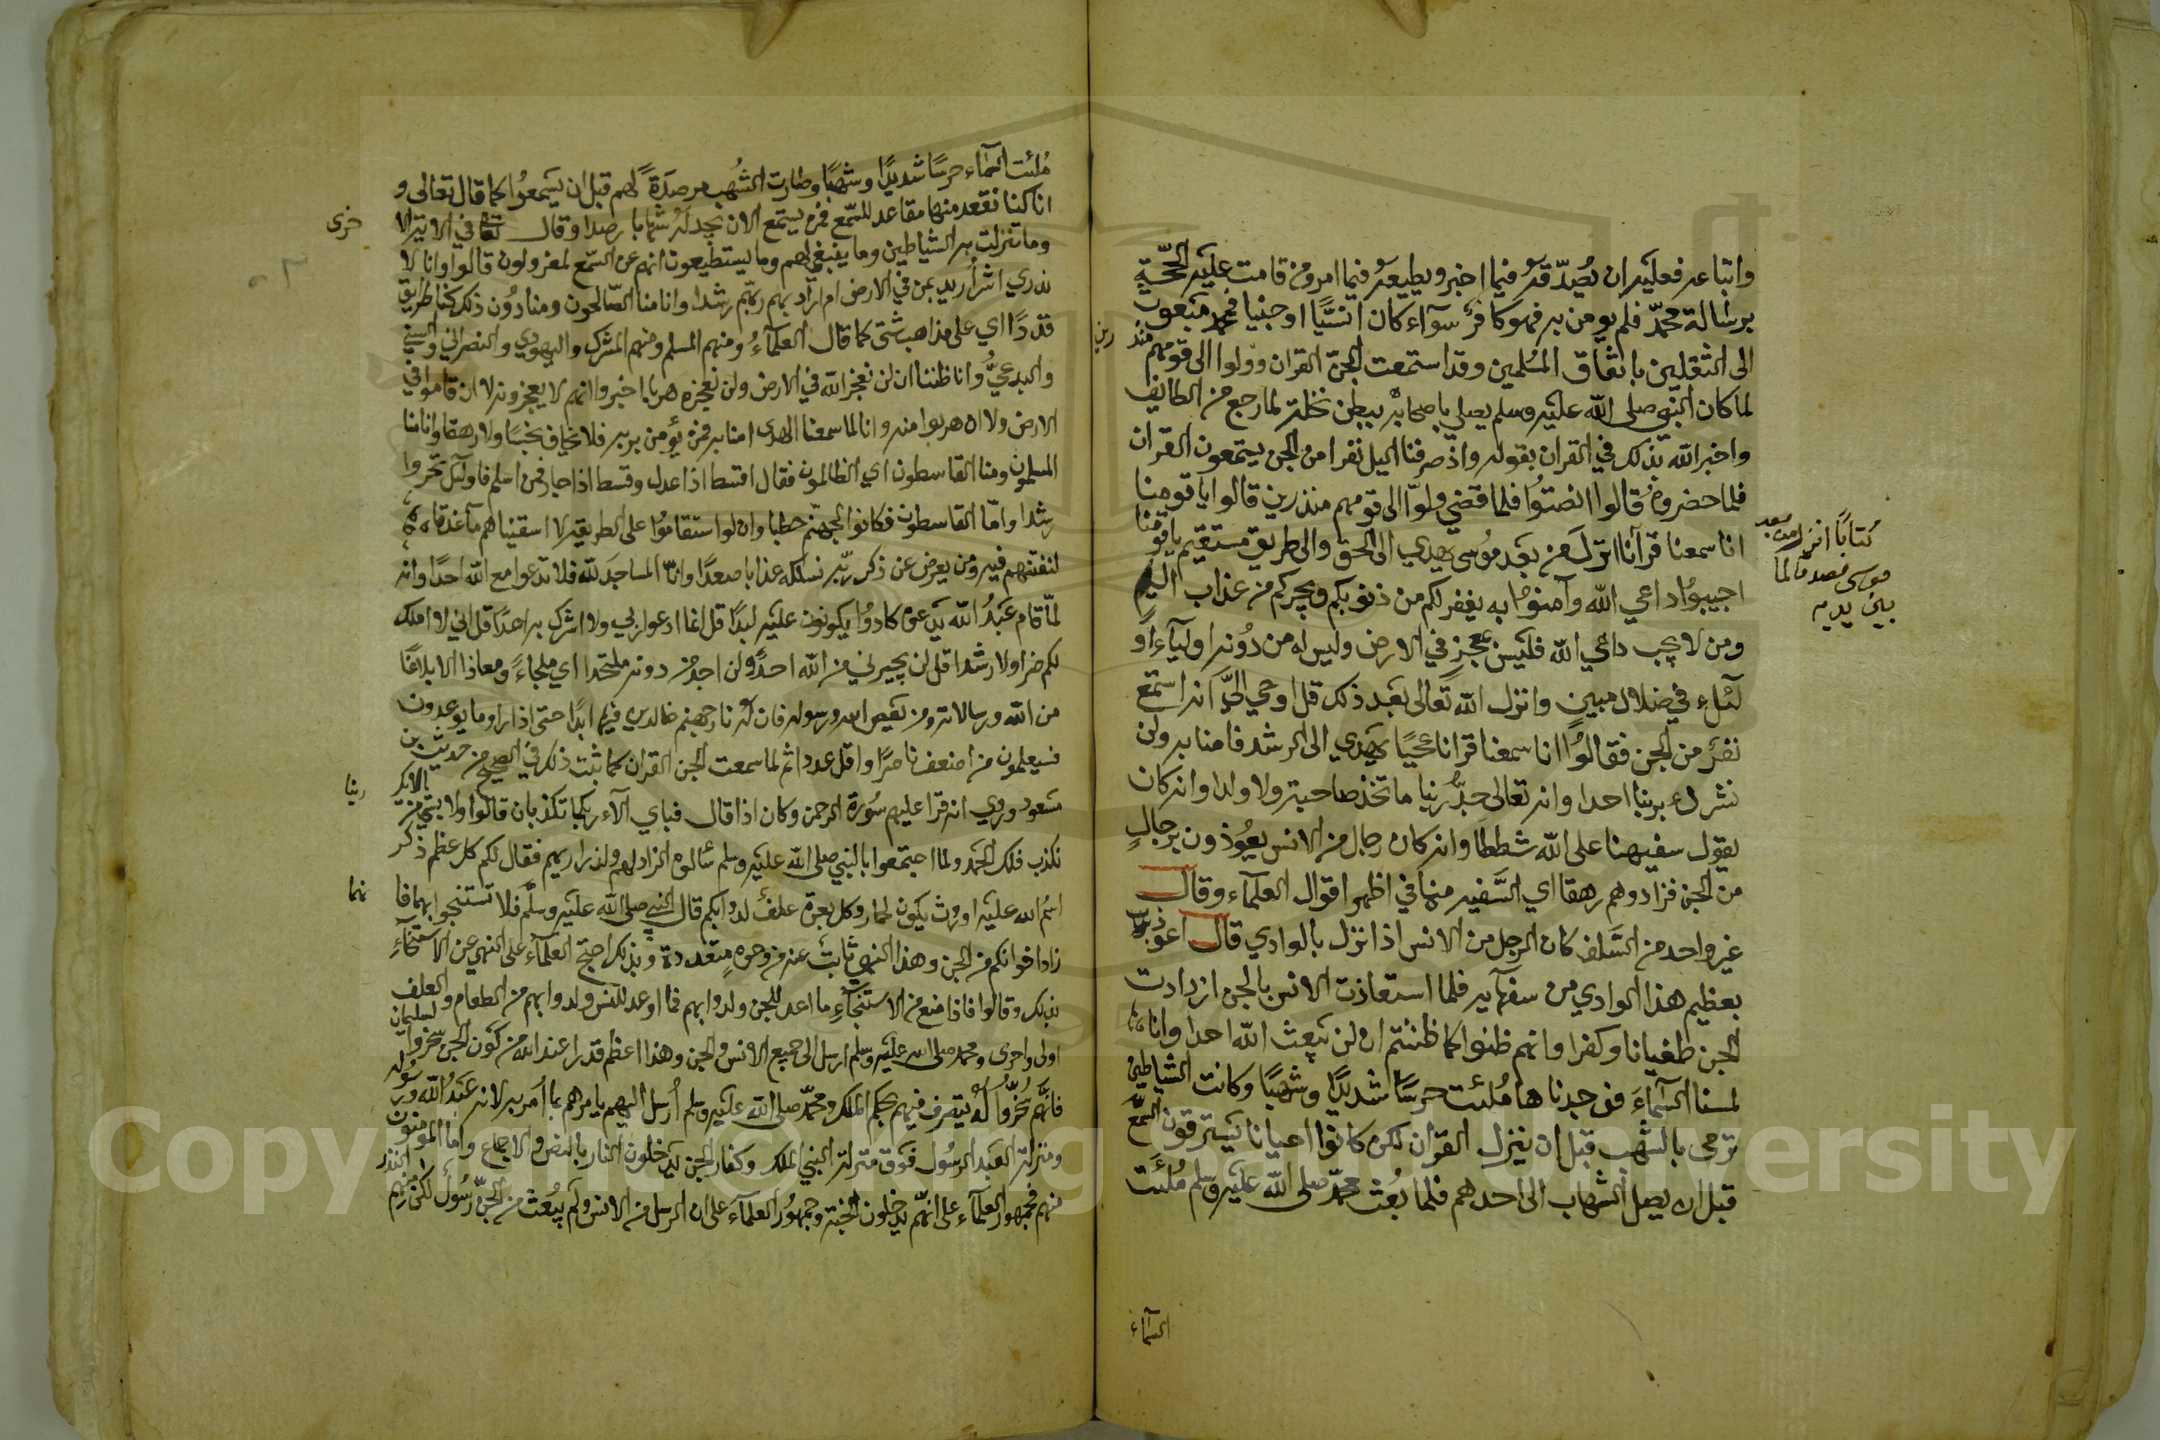 واتباعه فعليه ان يصدقه فيما اخبر ويطيعه فيما امر ومن قامت عليه الحجة
برسالة محمد فلم يومن به فهو كافر سوآء كان انسيًا او جنيا محمد مبعوث
الى الثقلين باتفاق المسلمين وقد استمعت الجن القران وولوا الى قومهم منذرين
لما كان النبي صلى الله عليه وسلم يصلي باصحابه ببطن نخلة لما رجع من الطايف
واخبر الله بذلك في القران بقوله واذ صرفنا اليك نفرا من الجن يستمعون القران
فلما حضروه قالوا انصتوا فلما قضي ولوا الى قومهم منذرين قالوا يا قومنا
انا سمعنا قرآنا انزل من بعد موسى يهدي الى الحق والى طريق مستقيم يا قومنا
كتابًا انزل من بعد
موسى مصدقا لما
بين يديه
اجيبوا داعي الله وآمنوا به يغفر لكم من ذنوبكم ويجركم من عذاب اليم
ومن لا يجب داعي الله فليس بمعجز في الارض وليس له من دونه اوليآء او
لئك في ضلال مبين وانزل الله تعالى بعد ذلك قل اوحي اليَّ انه استمع
نفر من الجن فقالوا انا سمعنا قرانا عجبًا يهدي الى الرشد فامنا به ولن
نشرك بربنا احدا وانه تعالى جدُّ ربنا ما اتخذ صاحبة ولا ولدا وانه كان
يقول سفيهنا على الله شططا وانه كان رجال من الانس يعوذون برجالٍ
من الجن فزادوهم رهقا اي السَّفيه منا في اظهر اقوال العلمآء وقال
غير واحد من السَّلف كان الرجل من الانس اذا نزل بالوادي قال اعوذ
بعظيم هذا الوادي من سفهآيه فلما استعاذت الانس بالجن ازدادت
الجن طغيانا وكفرا وانهم ظنوا كما ظننتم ان لن يبعث الله احدا وانا
لمسنا السمآءَ فوجدناها مُلئت حرسًا شديدًا وشهبًا وكانت الشياطين
ترمى بالشهب قبل ان ينزل القران لكن كانوا احيانا يسترقون السمع
قبل ان يصل الشهاب الى احدهم فلما بُعث محمّد صلى الله عليه وسلم مُلئت
السمآء
مُلئت السمآء حرسًا شديدًا وشهبًا وصارت الشُهب مرصدَةً لهم قبل ان يسمعوا كما قال تعالى و
انا كنا نقعد منها مقاعد للسمع فمن يستمع الان يجد له شهابا رصدا وقال تعالى في الاية الا
خرى
وما تنزلت به الشياطين وما ينبغي لهم وما يستطيعون انهم عن السمع لمعزولون قالوا وانا لا
ندري اشر اريد بمن في الارض ام اراد بهم ربهم رشدا وانا منا الصالحون ومنا دون ذلك كنا طرايق
قددًا اي على مذاهب شتى كما قال العلمآءُ ومنهم المسلم ومنهم المشرك واليهودي والنصراني والسني
والبدعيُّ وانا ظننا ان لن نعجز الله في الارض ولن نعجزه هربا اخبروا انهم لا يعجزونه لا ان قاموا في
الارض ولا ان هربوا منه وانا لما سمعنا الهدى امنا به فمن يؤمن بربه فلا يخاف بخسًا ولا رهقا وانا منا
المسلمون ومنا القاسطون اي الظالمون فقال اقسط اذا عدل وقسط اذا جار فمن اسلم فاولئك تحروا
رشدا وامّا القاسطون فكانوا لجهنم حطبا وان لو استقاموا على الطريقة لاسقيناهم مآء غدقا
لنفتنهم فيه ومن يعرض عن ذكر ربّه نسلكه عذابا صعدًا وانّ المساجد لله فلا تدعوا مع الله احدًا وانه
لمّا قام عَبدُ الله يدعوه كادوا يكونون عليه لبدًا قل انما ادعوا ربي ولا اشرك به احدًا قل اني لا املك
لكم ضرا ولا رشدا قل لن يجيرني من الله احدٌ ولن اجد من دونه ملتحدا اي ملجاءً ومعاذا الا بلاغًا
من الله ورسالاته ومن يعص الله ورسوله فان له نار جهنم خالدين فيها ابدًا حتى اذا راوا ما يوعدون
فسيعلمون من اضعف ناصرًا واقل عددا ثم لما سمعت الجن القران كما ثبت ذلك في الصحيح من حديث بن
مسعود وروي انه قرا عليهم سُورة الرحمن وكان اذا قال فباي الآء ربكما تكذبان قالوا ولا بشيء من الائك
ربنا
نكذب فلك الحمد ولما اجتمعوا بالنبي صلى الله عليه وسلم سألوه الزاد لهم ولدوابهم فقال لكم كل عظم ذكر
اسمُ الله عليه اوفر ما يكون لحما وكل بعرة علفٌ لدوابكم قال النبي صلى الله عليه وسلَّم فلا تستنجوا بهما فا
نهما
زاد اخوانكم من الجن وهذا النهي ثابت عنه من وجوهٍ متعددة وبذلك احتج العلمآء على النهي عن الاستنجآء
بذلك وقالوا فاذا منع من الاستنجآءِ ما اعد للجن ولدوابهم فما اعد للانس ولدوابهم من الطعام والعلف
اولى واحرى ومحمد صلى الله عليه وسلم ارسل الى جميع الانس والجن وهذا اعظم قدرا عند الله من كون الجن سخروا لسليمان
فانهم سُخّروا لهُ يتصرف فيهم بحكم الملك ومحمّد صلى الله عليه وسلم أُرسل اليهم يامرهم بما اُمر به لانه عَبدُ الله ورسُوله
ومنزلة العَبد الرسُول فوق منزلة النبي الملك وكفار الجن يدخلون النار بالنص والاجماع واما المومنون
منهم فجمهور العلمآء على انهم يدخلون الجنة وجمهُور العلمآء على ان الرسل من الانس ولم يبعَث من الجنّ رسُول لكن منهم النذر
Copyright © King Saud University